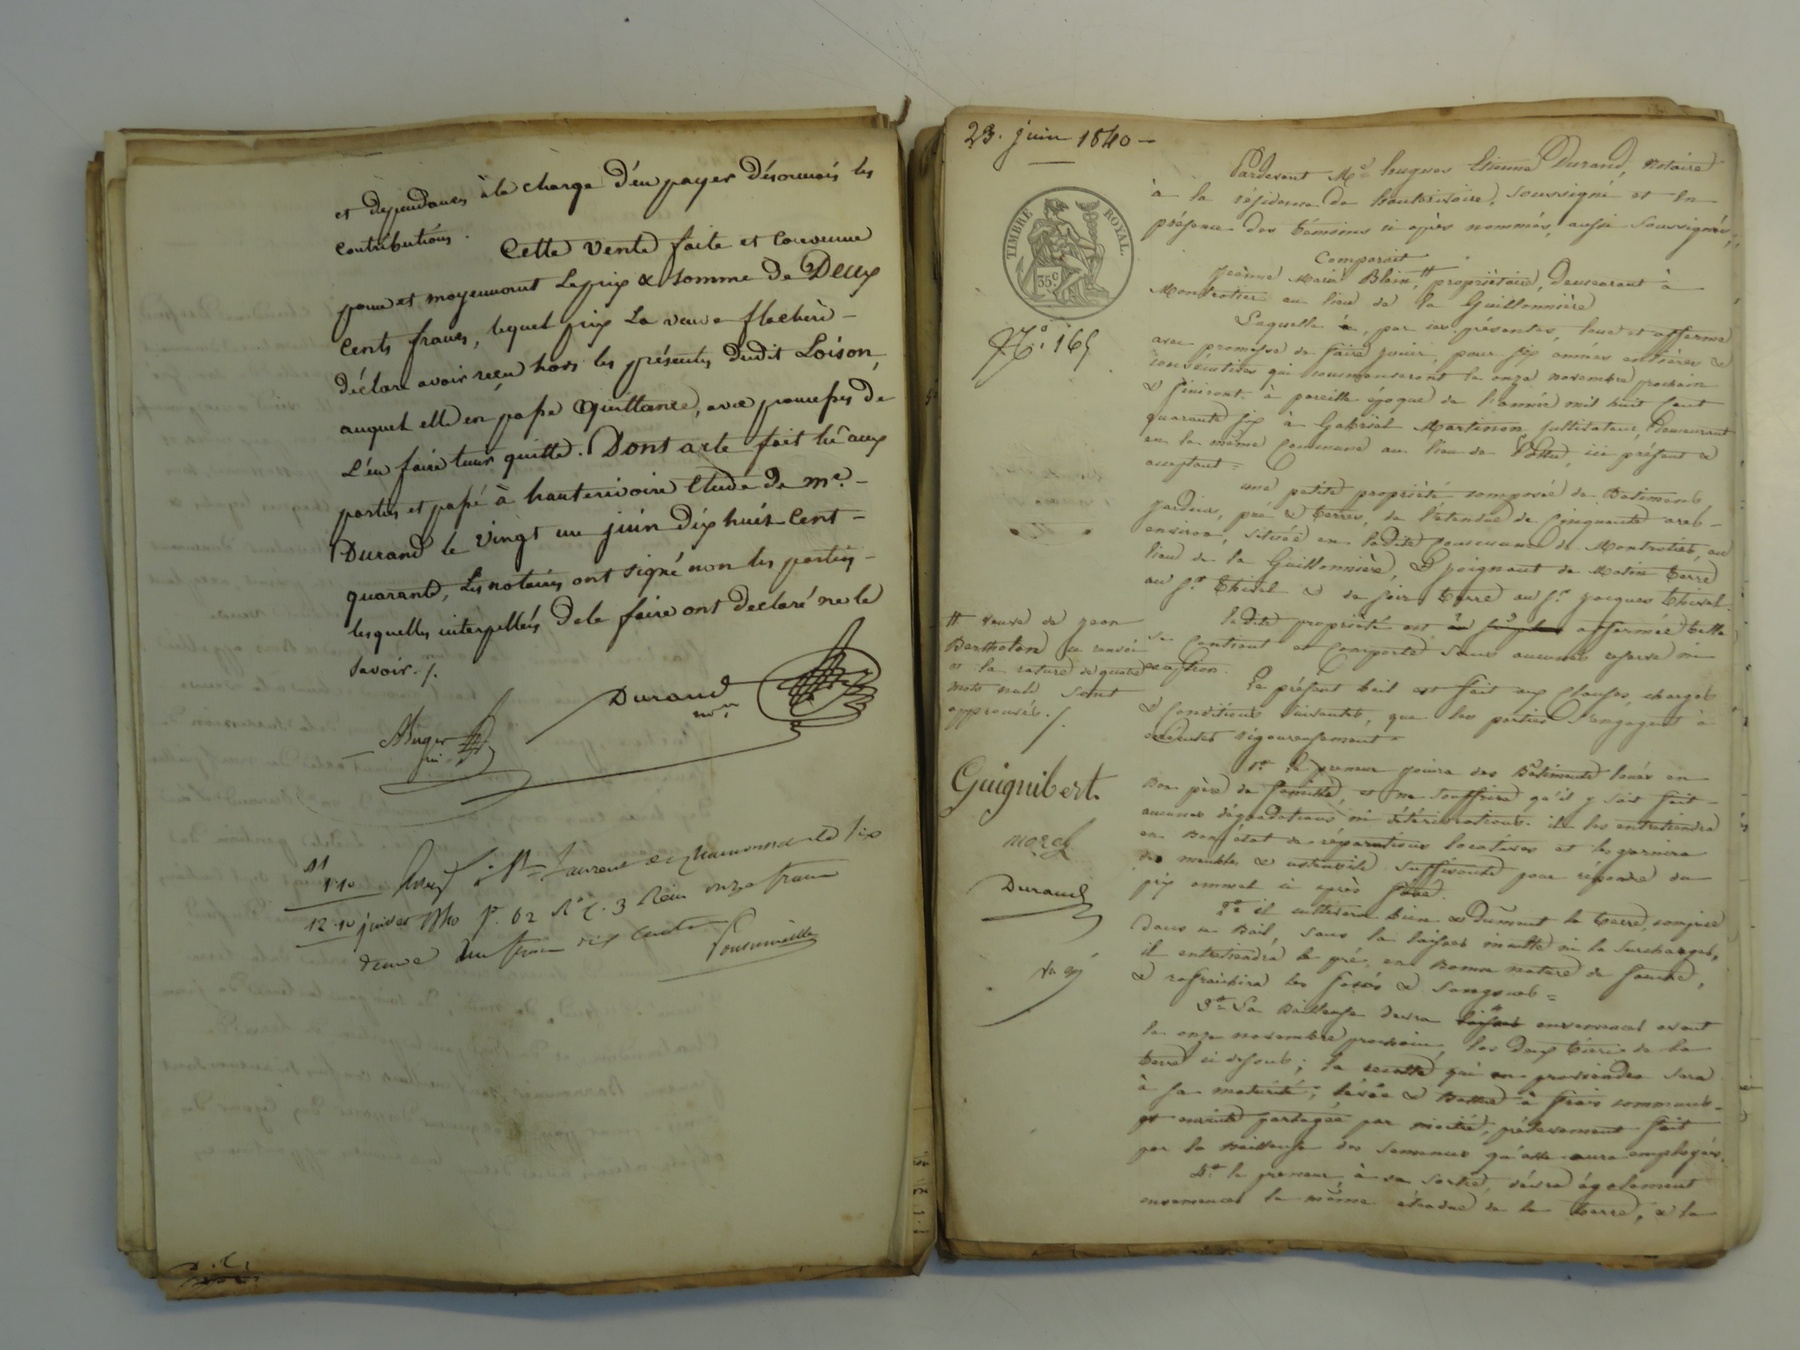 et dépendances à la charge d'en payer désormais les
contributions.
Cette vente faite et convenue
pour et moyennant le prix & somme de Deux
Cents francs, lequel prix la veuve flachère
déclare avoir reçu hors les présentes dudit Loison,
auquel elle en passe quittance, avec promesses de
l'en faire tenir quitte. Dont acte fait lu aux
parties et passé à hauterivoire Etude de me.
Durand le vingt un juin dix huit cent
quarante, les notaires ont signé non les parties
lesquelles interpellées de le faire ont déclaré ne le
savoir ./.
Durand
nre
12.10
deux francs dix cent
23. juin 1840
TIMBRE ROYAL.
35c
No. 165
Pardevant Me hugues Etienne Durand, Notaire
à la résidence de hauterivoire, soussigné et en
présence des témoins ci après nommés, aussi soussignés,
Comparait
Jeanne Marie Blein, # propriétaire, demeurant à
Montrotier au lieu de la Guillonnière
Laquelle a, par ces présentes, loué et affermé
avec promesse de faire jouir, pour six années entières &
consécutives qui commenceront le onze novembre prochain
& finiront à pareille époque de l'année mil huit cent
quarante six à Gabriel Martinon cultivateur, demeurant
en la même Commune au lieu de, ici présent &
acceptant =
une petite propriété composée de Batiments,
jardins, pré & terres, de l'étendue de Cinquante ares
environ, située en ladite commune de Montrotier, au
lieu de la Guillonnière, & joignant de Matin terre
au Sr. Thivel & de soir, terre au Sr. Jacques Thivel.
ladite propriété est affermée telle
se Contient et Comporte sans aucune réserve ni
exception.
# veuve de Jean
Bertholon ce renvoi
et la rature de quatre
mots nuls sont
approuvés ./.
Le présent bail est fait aux Clauses, charges
& Conditions suivantes, que les parties s'engagent à
exécuter rigoureusement
1º le preneur jouira des Batiments loués en
Bon père de famille, et ne souffrira qu'il y soit fait
aucunes dégradations ni détériorations. il les entretiendra
en Bon état de réparations locatives et les garnira
de meubles & ustensils suffisants pour répondre du
prix annuel ci après fixé.
2º il cultivera bien & dûment la terre, comprise
dans ce Bail, sans la laisser inculte ni la surcharger,
il entretiendra le pré en Bonne nature de fauche,
& rafraichira les fossés & sangsues =
3º La Bailleuse devra laisser ensemencer avant
le onze novembre prochain, les deux tiers de la
terre ci dessus; la recolte qui en proviendra sera
à sa maturité, levée & Battue à frais communs
et ensuite partagée par moitié, prélèvement fait
par la Bailleuse des semences qu'elle aura employées.
4º le preneur, à sa sortie, devra également
ensemencer la même étendue de la terre, & la
Guignibert
morel
Durand